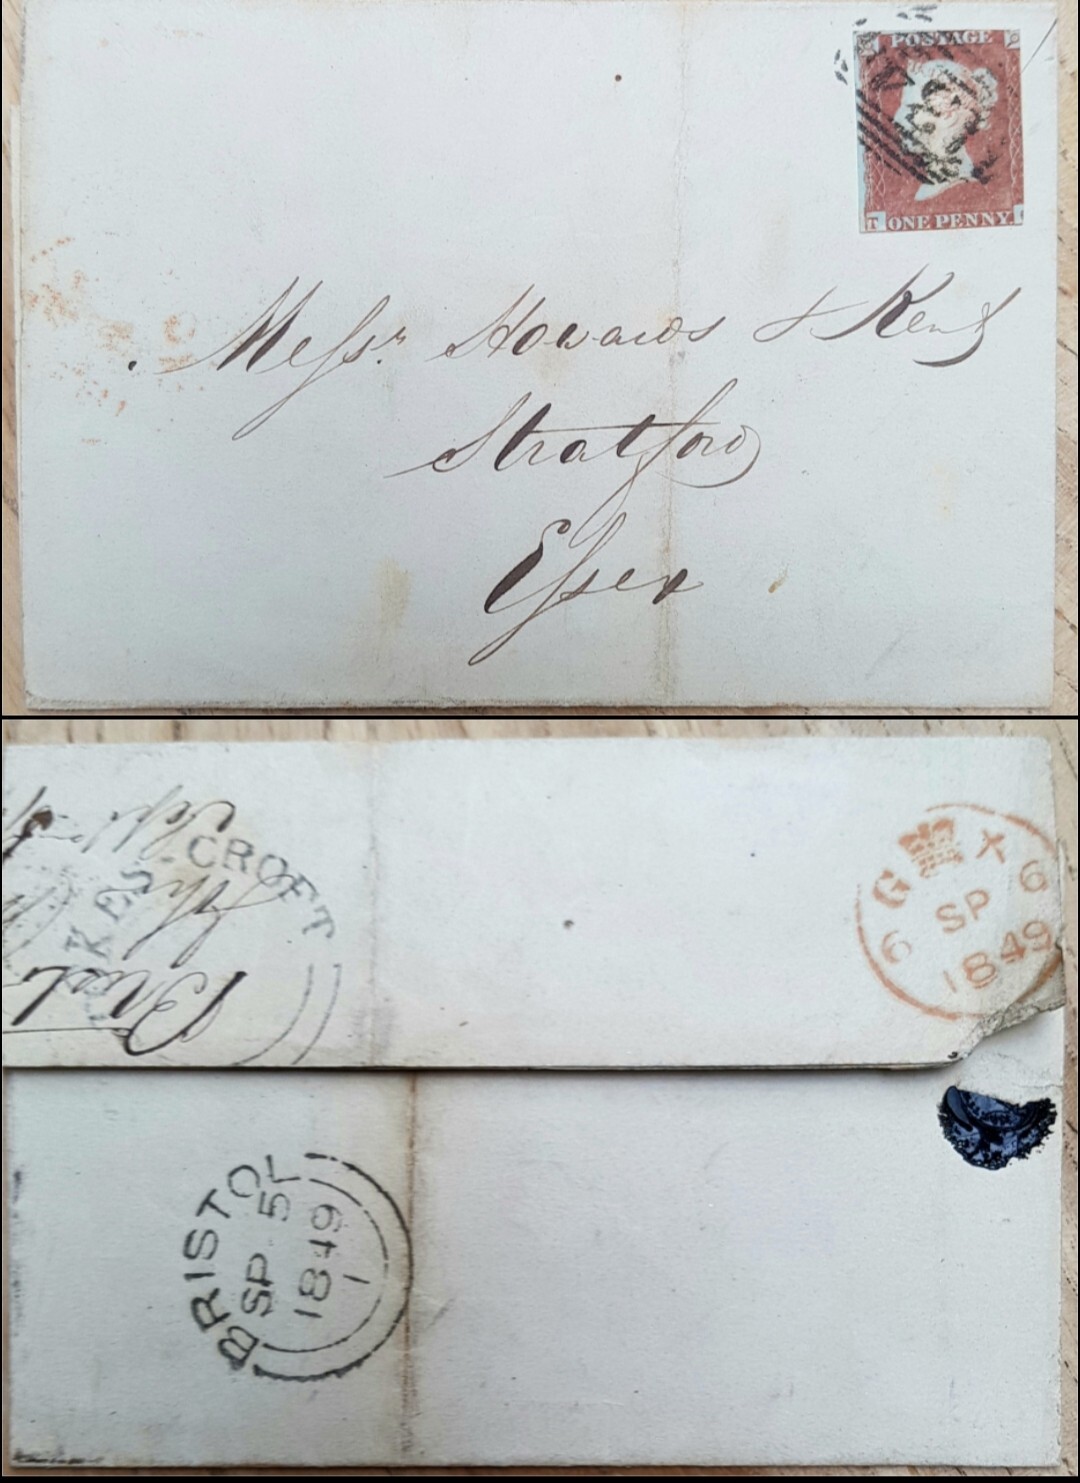 POSTAGE
T ONE PENNY.
Messrs. Howards & Kent
Stratford
Essex
STOKES-CROFT
G X
6 SP 6
1849
BRISTOL
SP 5
1849
1